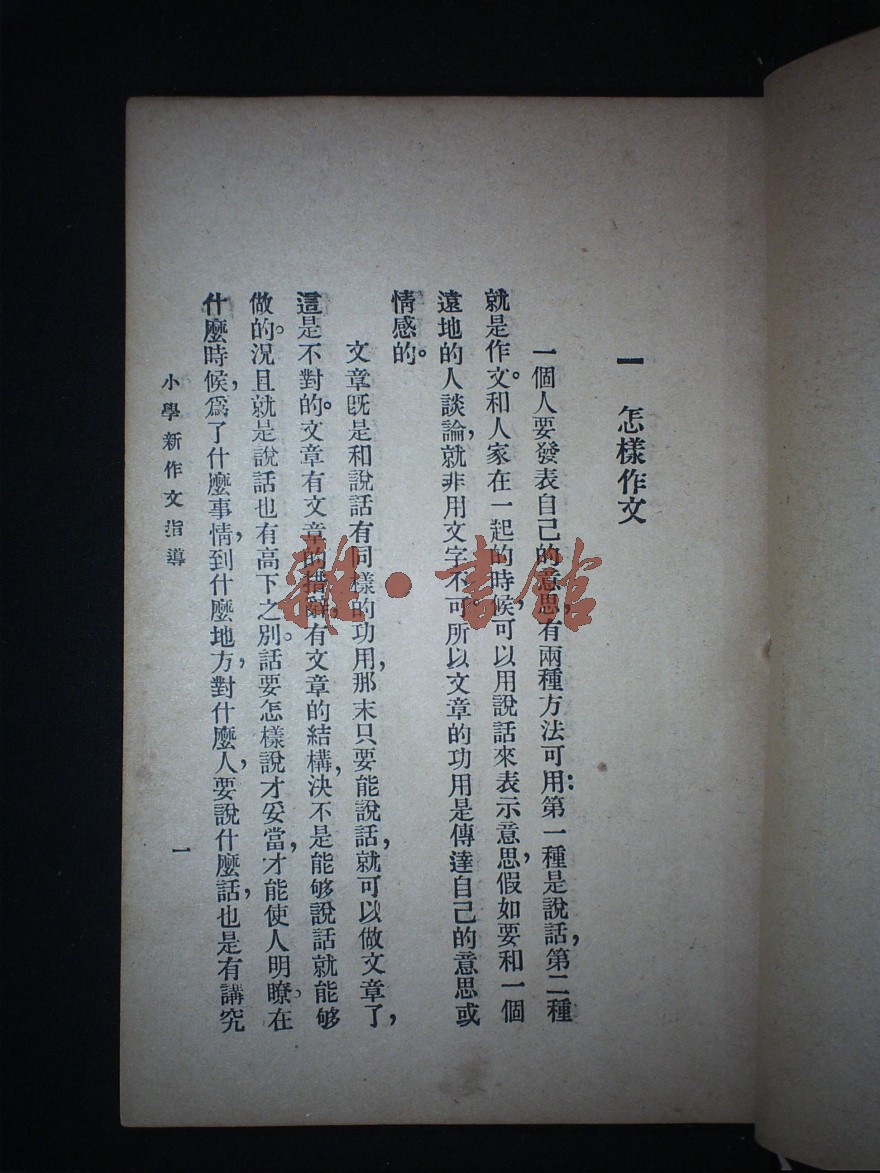 一　怎樣作文
一個人要發表自己的意思，有兩種方法可用：第一種是說話，第二種
就是作文。和人家在一起的時候，可以用說話來表示意思，假如要和一個
遠地的人談論，就非用文字不可。所以文章的功用是傳達自己的意思或
情感的。
文章既是和說話有同樣的功用，那末只要能說話，就可以做文章了，
這是不對的。文章有文章的措辭，有文章的結構，決不是能够說話就能够
做的。況且就是說話也有高下之別。話要怎樣說才妥當，才能使人明瞭。在
什麼時候，爲了什麼事情，到什麼地方，對什麼人，要說什麼話，也是有講究
小學新作文指導
一
雜·書館